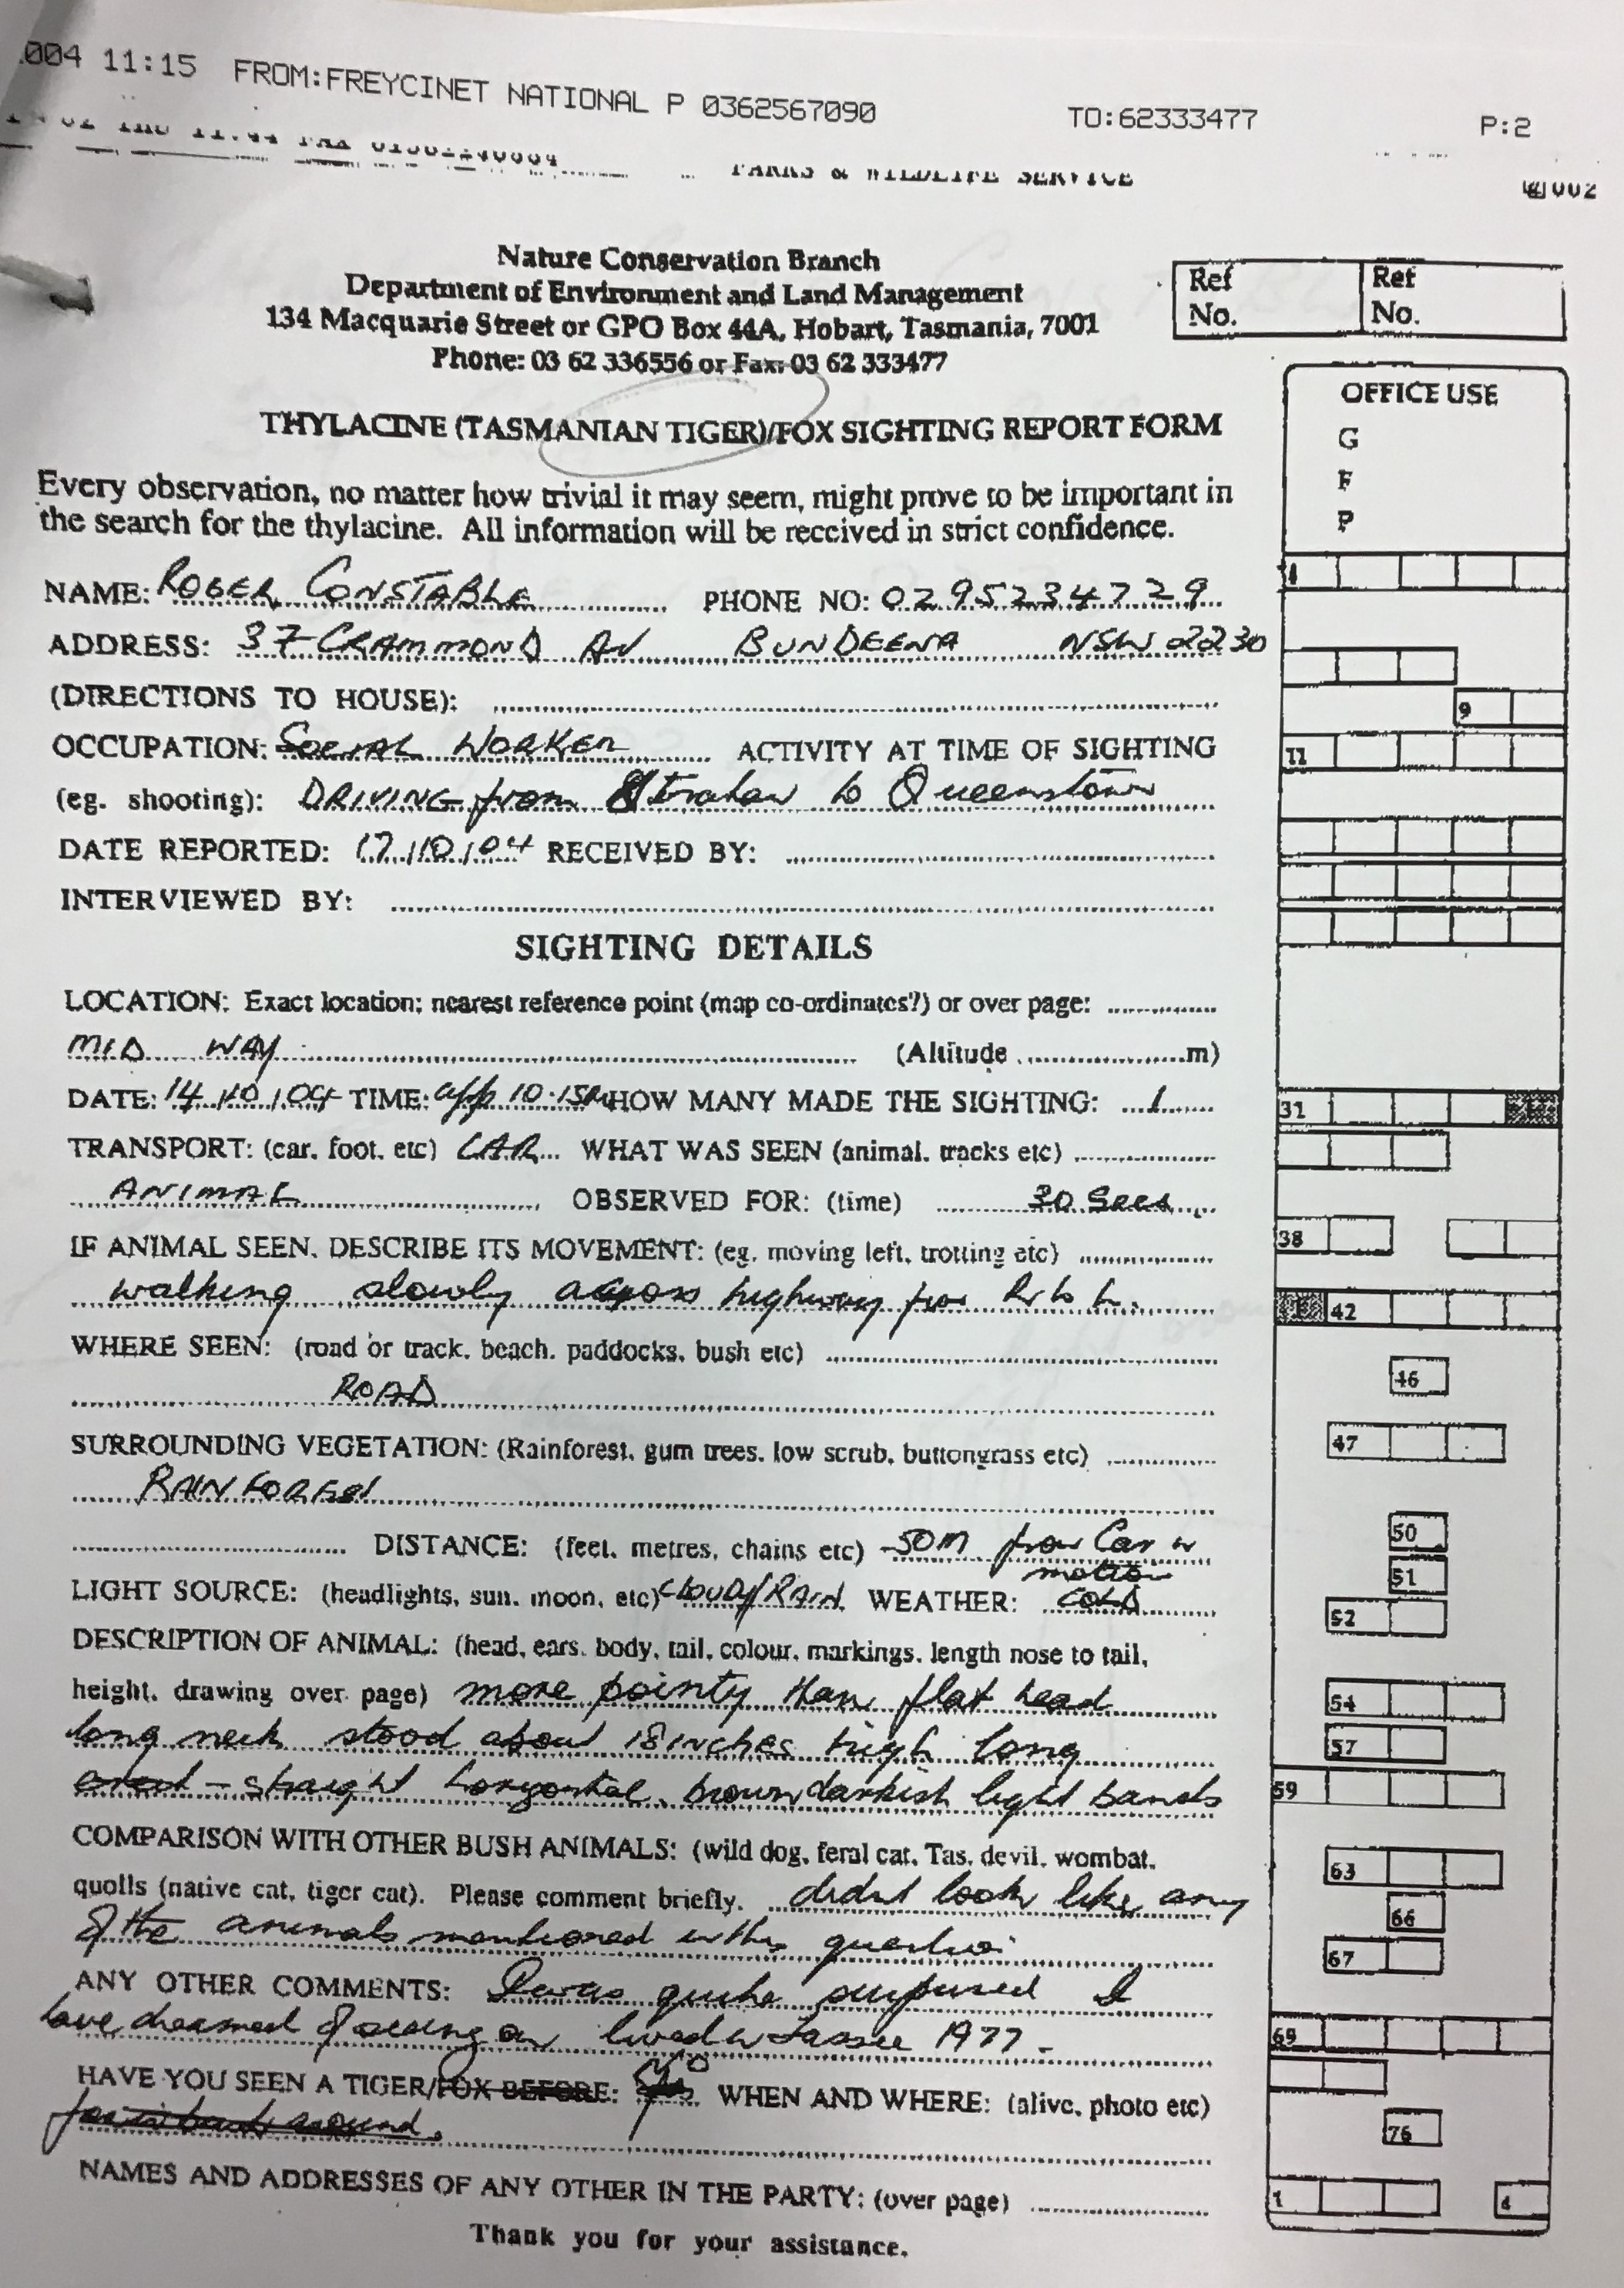 004 11:15 FROM:FREYCINET NATIONAL P 0362567090 TO:62333477 P:2
PARKS & WILDLIFE SERVICE 002
Nature Conservation Branch
Department of Environment and Land Management
134 Macquarie Street or GPO Box 44A, Hobart, Tasmania, 7001
Phone: 03 62 336556 or Fax: 03 62 333477
Ref No. Ref No.
THYLACINE (TASMANIAN TIGER)/FOX SIGHTING REPORT FORM
OFFICE USE
G
F
P
Every observation, no matter how trivial it may seem, might prove to be important in
the search for the thylacine. All information will be received in strict confidence.
NAME: ROGER CONSTABLE PHONE NO: 0295234729
ADDRESS: 37 CRAMMOND AV BUNDEENA NSW 2230
(DIRECTIONS TO HOUSE):
9
OCCUPATION: SOCIAL WORKER ACTIVITY AT TIME OF SIGHTING
11
(eg. shooting): DRIVING from Strahan to Queenstown
DATE REPORTED: 17/10/04 RECEIVED BY:
INTERVIEWED BY:
SIGHTING DETAILS
LOCATION: Exact location; nearest reference point (map co-ordinates?) or over page:
MID WAY (Altitude m)
DATE: 14/10/04 TIME: app 10.15 HOW MANY MADE THE SIGHTING: 1
31
TRANSPORT: (car, foot, etc) CAR WHAT WAS SEEN (animal, tracks etc)
ANIMAL OBSERVED FOR: (time) 30 Secs
38
IF ANIMAL SEEN, DESCRIBE ITS MOVEMENT: (eg. moving left, trotting etc)
walking slowly across highway from R to L.
42
WHERE SEEN: (road or track, beach, paddocks, bush etc)
46
ROAD
SURROUNDING VEGETATION: (Rainforest, gum trees, low scrub, buttongrass etc)
47
RAINFOREST
50
DISTANCE: (feet, metres, chains etc) 50m from Car in
motion
51
LIGHT SOURCE: (headlights, sun, moon, etc) CLOUDY/RAIN WEATHER: COLD
52
DESCRIPTION OF ANIMAL: (head, ears, body, tail, colour, markings, length nose to tail,
height, drawing over page) more pointy than flat head
54
long neck stood about 18 inches high long
57
straight horyzontal, brown darkish light bands
59
COMPARISON WITH OTHER BUSH ANIMALS: (wild dog, feral cat, Tas. devil, wombat,
63
quolls (native cat, tiger cat). Please comment briefly. didnt look like any
66
of the animals mentioned in this question
67
ANY OTHER COMMENTS: I was quite surprised I
have dreamed of seeing on lived in Tassie 1977.
69
HAVE YOU SEEN A TIGER/FOX BEFORE: No WHEN AND WHERE: (alive, photo etc)
76
NAMES AND ADDRESSES OF ANY OTHER IN THE PARTY: (over page)
1 4
Thank you for your assistance.